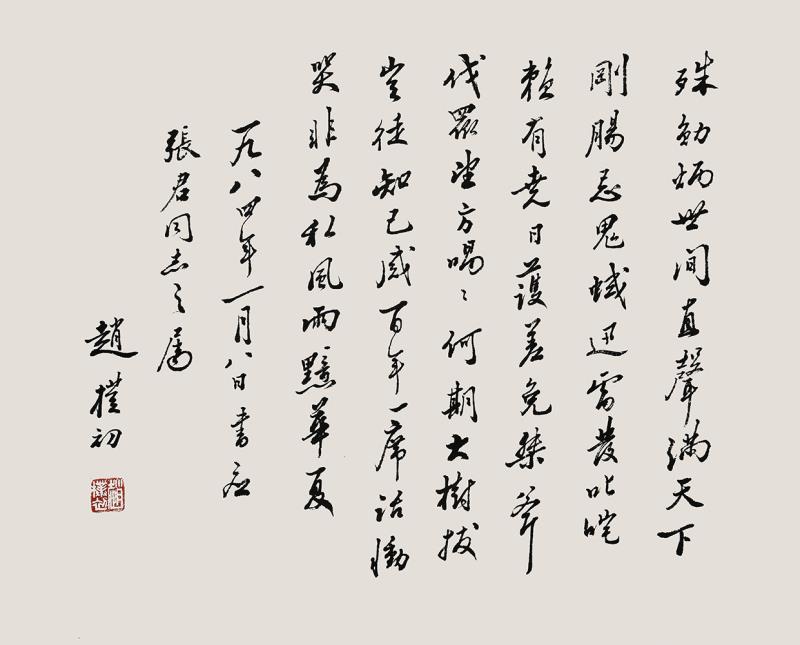 殊勛炳世間直聲滿天下
剛腸忌鬼蜮迅雷發叱咤
賴有堯日護差免桀斧
伐眾望方喁々何期大樹拔
豈徒知己感百年一席話慟
哭非為私風雨黯華夏
一九八四年一月八日書應
張君同志之屬
趙樸初